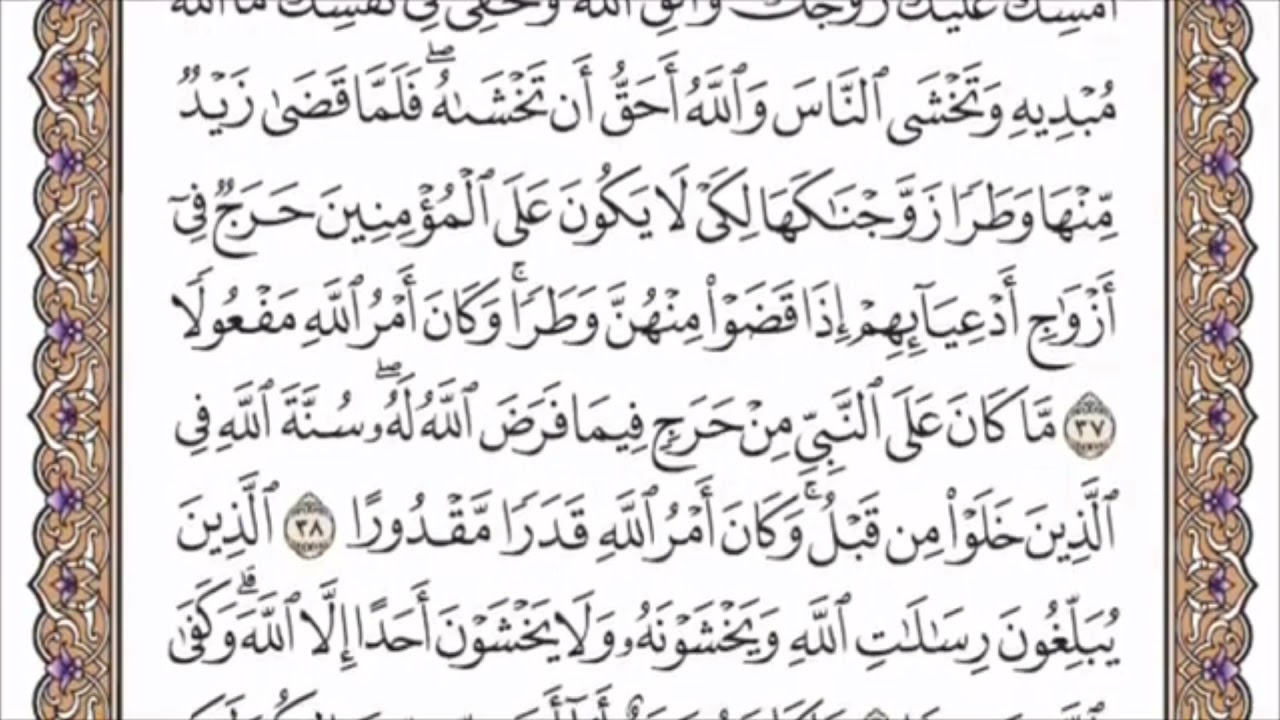 أَمْسِكْ عَلَيْكَ زَوْجَكَ وَٱتَّقِ ٱللَّهَ وَتُخْفِى فِى نَفْسِكَ مَا ٱللَّهُ
مُبْدِيهِ وَتَخْشَى ٱلنَّاسَ وَٱللَّهُ أَحَقُّ أَن تَخْشَىٰهُ ۖ فَلَمَّا قَضَىٰ زَيْدٌ
مِّنْهَا وَطَرًا زَوَّجْنَٰكَهَا لِكَىْ لَا يَكُونَ عَلَى ٱلْمُؤْمِنِينَ حَرَجٌ فِىٓ
أَزْوَٰجِ أَدْعِيَآئِهِمْ إِذَا قَضَوْا۟ مِنْهُنَّ وَطَرًا ۚ وَكَانَ أَمْرُ ٱللَّهِ مَفْعُولًا
٣٧ مَّا كَانَ عَلَى ٱلنَّبِىِّ مِنْ حَرَجٍ فِيمَا فَرَضَ ٱللَّهُ لَهُۥ ۖ سُنَّةَ ٱللَّهِ فِى
ٱلَّذِينَ خَلَوْا۟ مِن قَبْلُ ۚ وَكَانَ أَمْرُ ٱللَّهِ قَدَرًا مَّقْدُورًا ٣٨ ٱلَّذِينَ
يُبَلِّغُونَ رِسَٰلَٰتِ ٱللَّهِ وَيَخْشَوْنَهُۥ وَلَا يَخْشَوْنَ أَحَدًا إِلَّا ٱللَّهَ ۗ وَكَفَىٰ